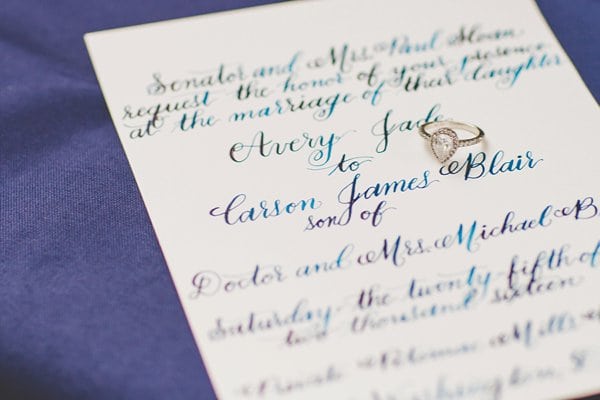 Senator and Mrs. Paul Sloan
request the honor of your presence
at the marriage of their daughter
Avery Jade
to
Carson James Blair
son of
Doctor and Mrs. Michael B
Saturday the twenty-fifth of
two thousand sixteen
Private Mills